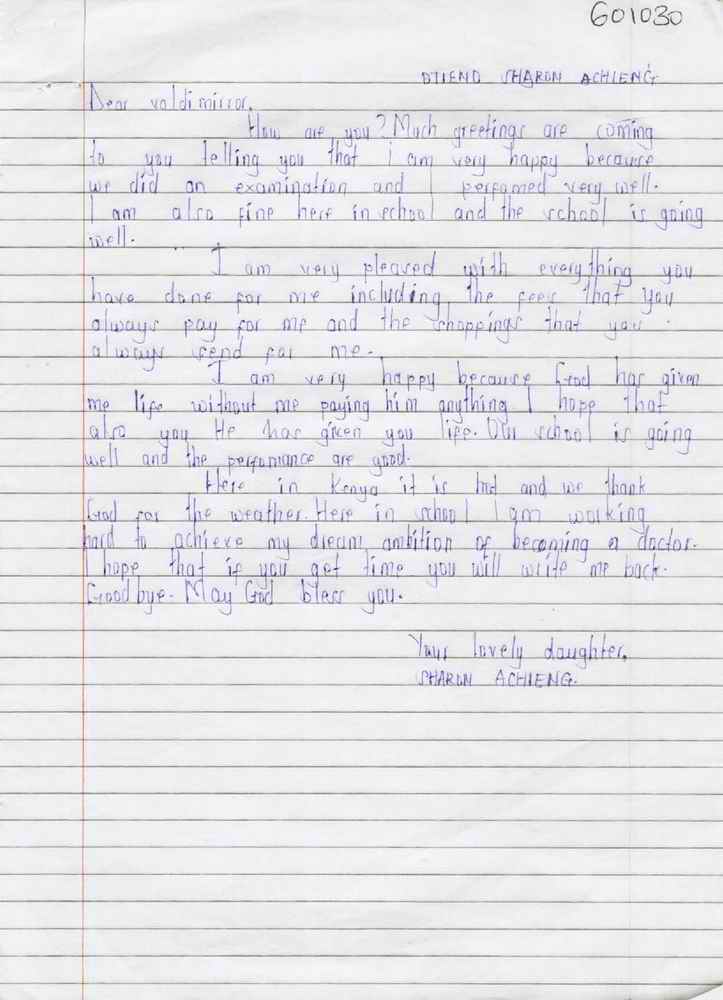 601030
OTIENO SHARON ACHIENG
Dear valdimirror,
How are you? Much greetings are coming
to you telling you that i am very happy because
we did an examination and I perfomed very well.
I am also fine here in school and the school is going
well.
I am very pleased with everything you
have done for me including the fees that you
always pay for me and the shoppings that you
always send for me.
I am very happy because God has given
me life without me paying him anything I hope that
also you He has given you life. Our school is going
well and the perfomance are good.
Here in Kenya it is hot and we thank
God for the weather. Here in school I am working
hard to achieve my dream ambition of becoming a doctor.
I hope that if you get time you will write me back.
Goodbye. May God bless you.
Your lovely daughter,
SHARON ACHIENG.